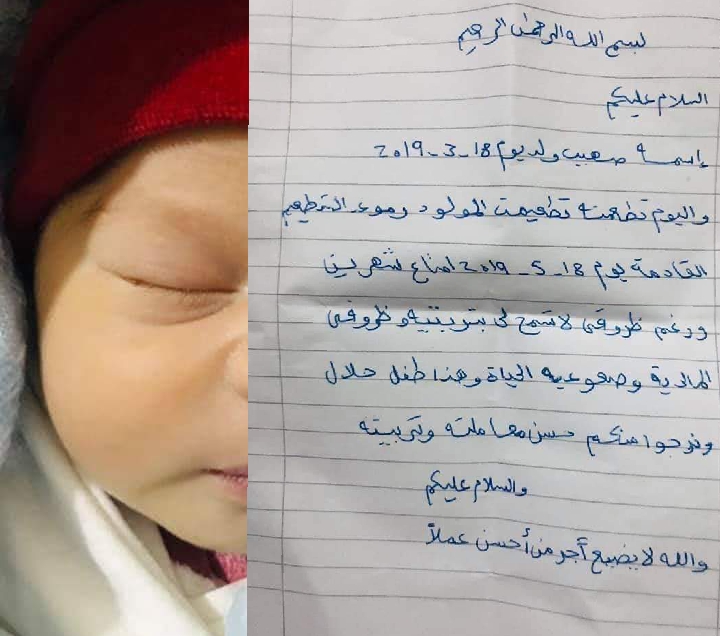 بسم الله الرحمن الرحيم
السلام عليكم
إسمه صهيب ولد يوم 18-3-2019
واليوم تطعمته تطعيمت المولود وموعد التطعيم
القادمة يوم 18-5-2019 شهرين
ورغم ظروفي لا تسمح لي بتربتيه وظروفي
المادية وصعوعيه الحياة وهذا طفل حلال
ونرجوا منكم حسن معاملته وتربيته
والسلام عليكم
والله لا يضيع أجر من أحسن عملاً